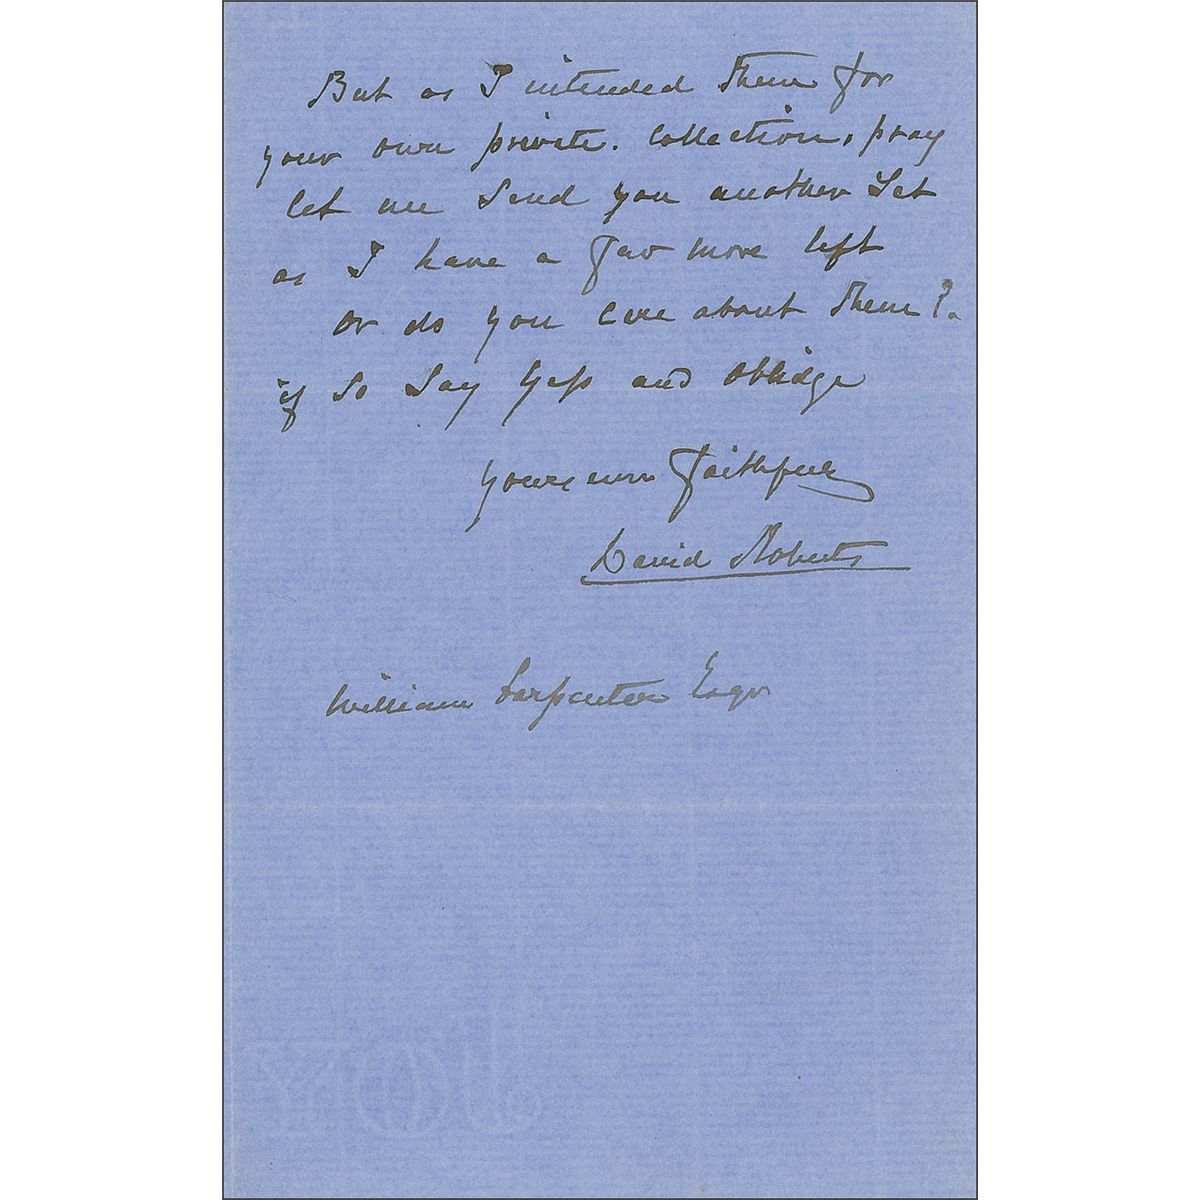 But as I intended them for
your own private. Collection, pray
let me Send you another Set
as I have a few more left
or do you Care about them?.
if So Say Yess and Oblidge
Yours Faithfully
David Roberts
William Carpenter Esqr